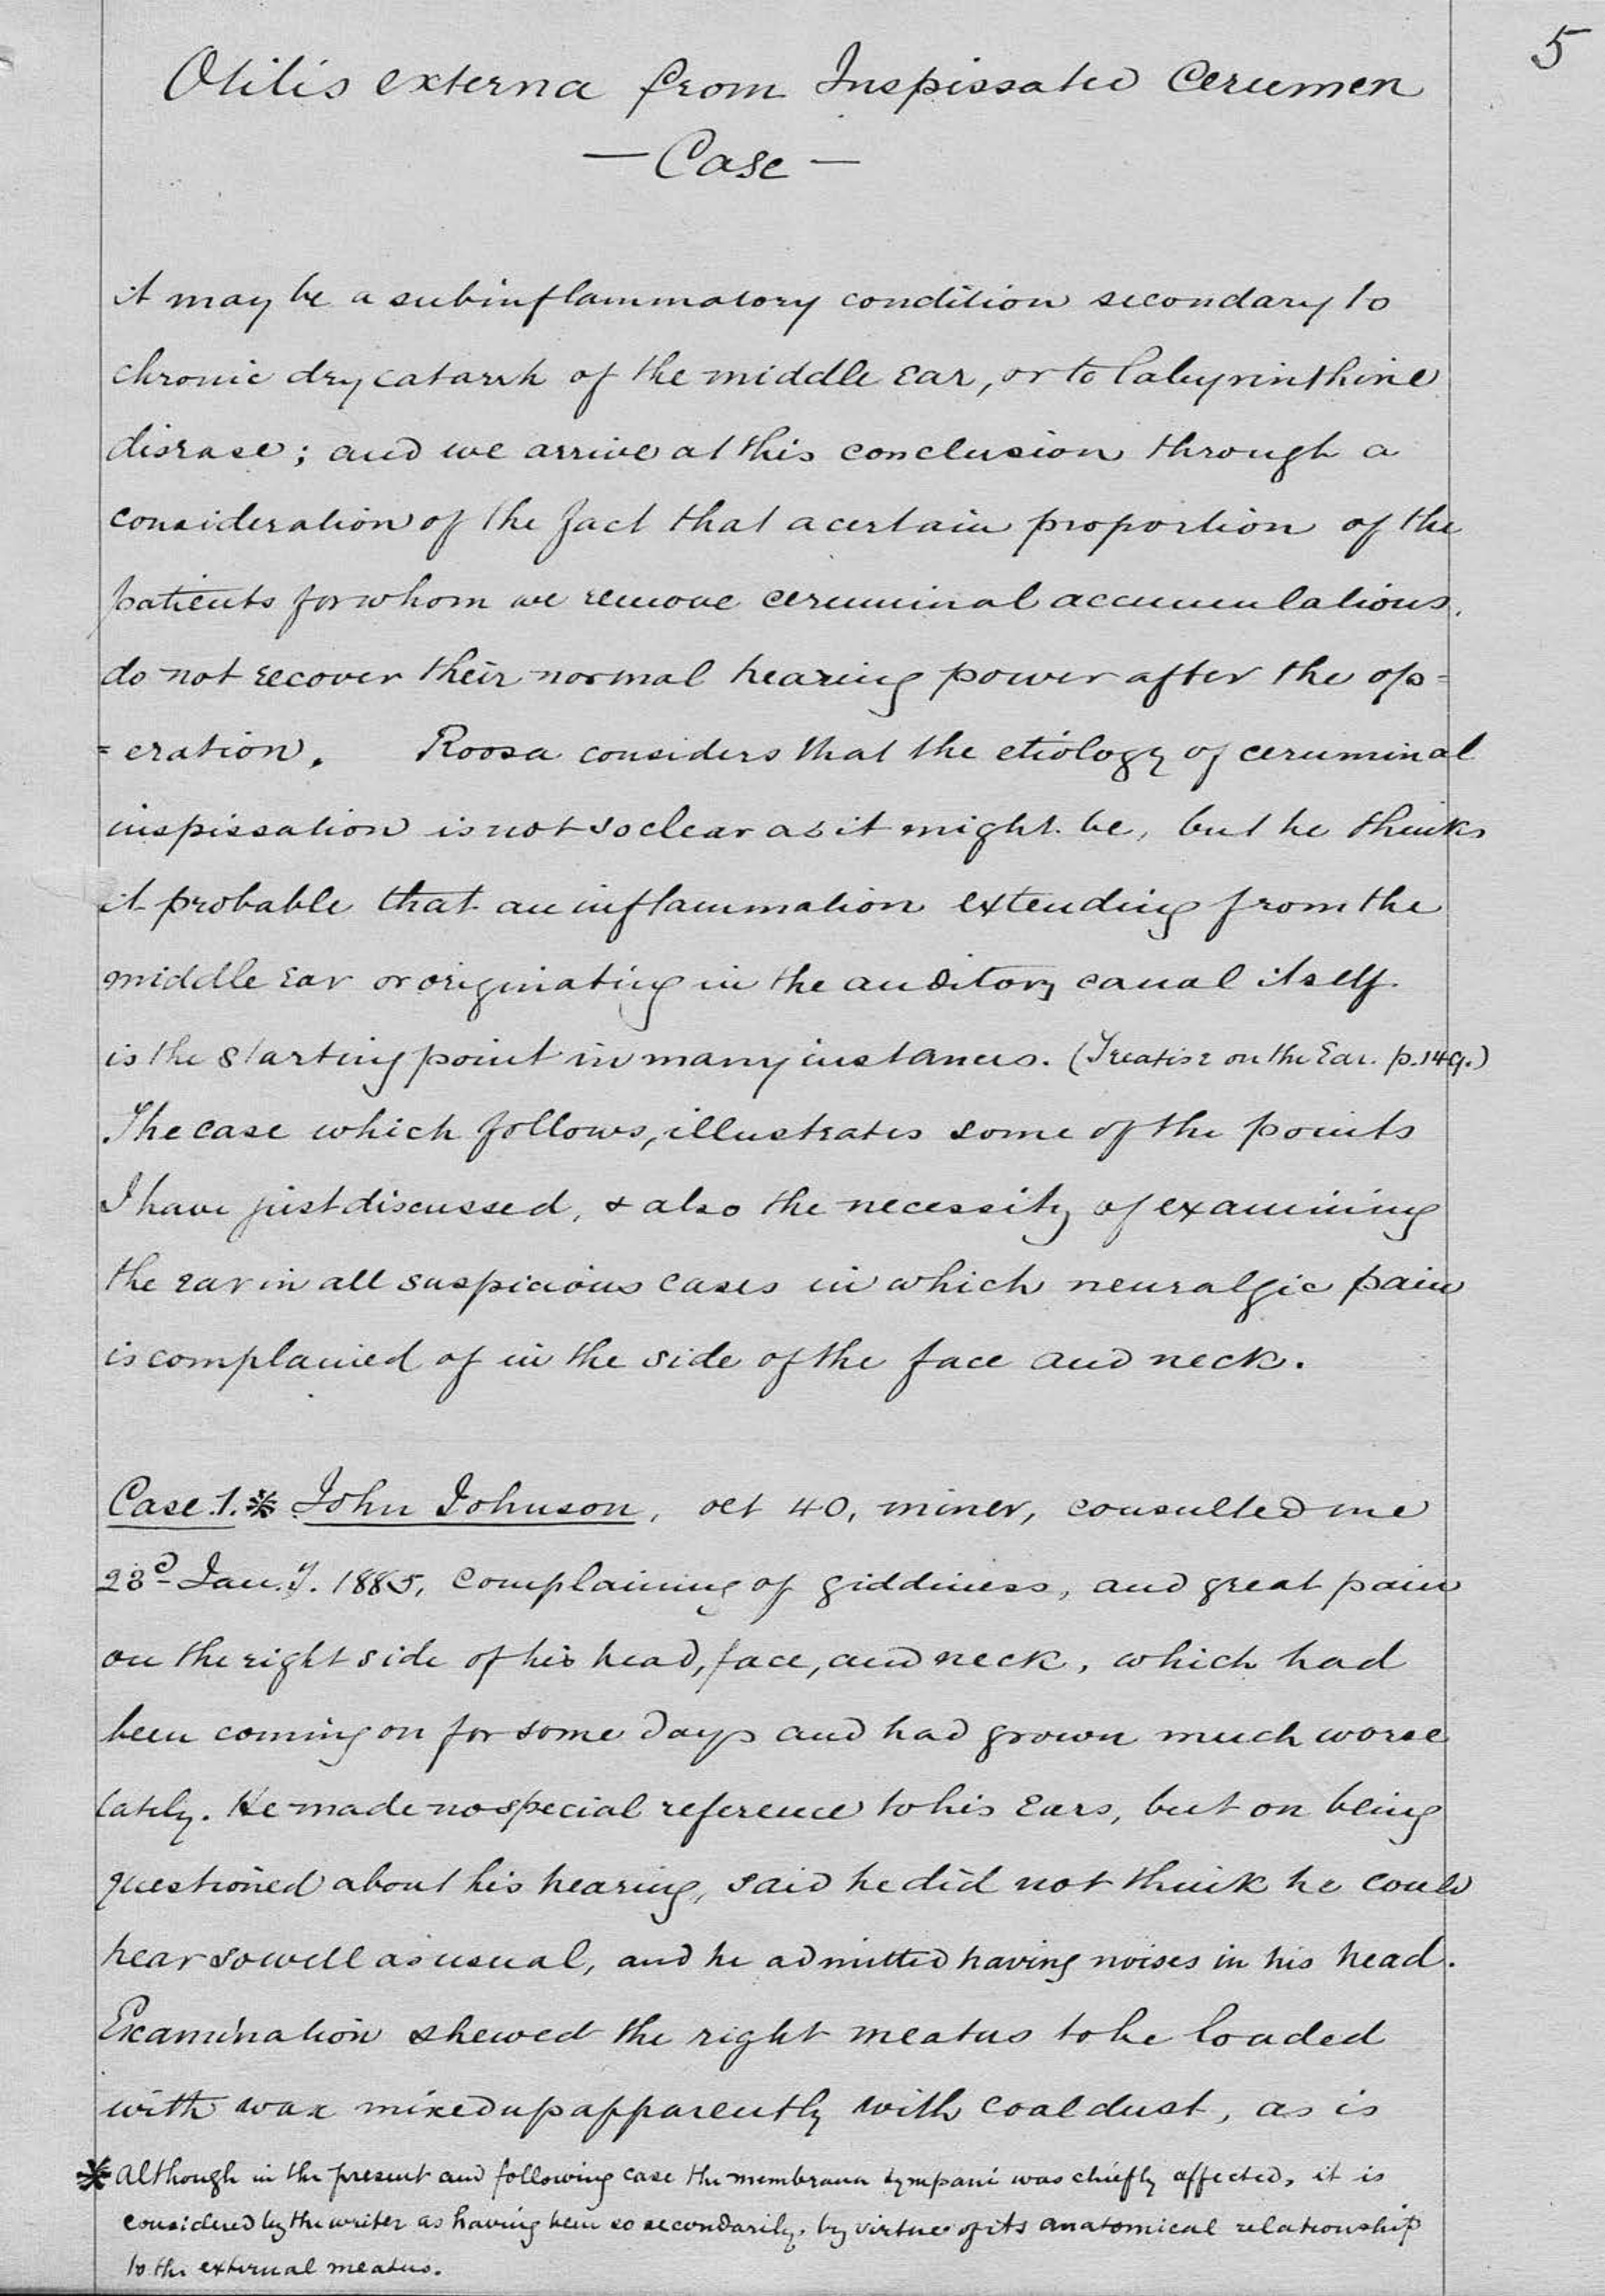 5
Otitis externa from Inspissated Cerumen
— Case —
it may be a subinflammatory condition secondary to
chronic dry catarrh of the middle ear, or to labyrinthine
disease; and we arrive at this conclusion through a
consideration of the fact that a certain proportion of the
patients for whom we remove ceruminal accumulations,
do not recover their normal hearing power after the op=
=eration. Roosa considers that the etiology of ceruminal
inspissation is not so clear as it might be, but he thinks
it probable that an inflammation extending from the
middle ear or originating in the auditory canal itself
is the starting point in many instances. (Treatise on the Ear. p. 149.)
The case which follows, illustrates some of the points
I have just discussed, & also the necessity of examining
the ear in all suspicious cases in which neuralgic pain
is complained of in the side of the face and neck.
Case 1.* John Johnson, aet 40, miner, consulted me
23d Jan.y. 1885, complaining of giddiness, and great pain
on the right side of his head, face, and neck, which had
been coming on for some days and had grown much worse
lately. He made no special reference to his ears, but on being
questioned about his hearing, said he did not think he could
hear so well as usual, and he admitted having noises in his head.
Examination shewed the right meatus to be loaded
with wax mixed up apparently with coal dust, as is
* Although in the present and following case the membrana tympani was chiefly affected, it is
considered by the writer as having been so secondarily, by virtue of its anatomical relationship
to the external meatus.